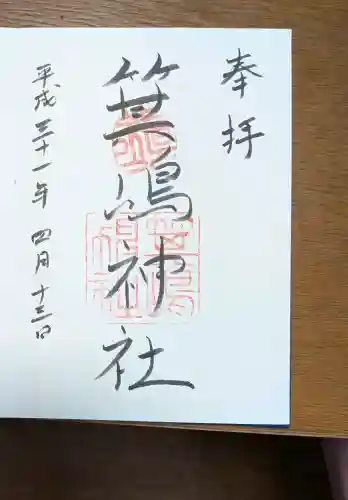 奉拝
箕嶋神社
平成三十一年 四月 十三日